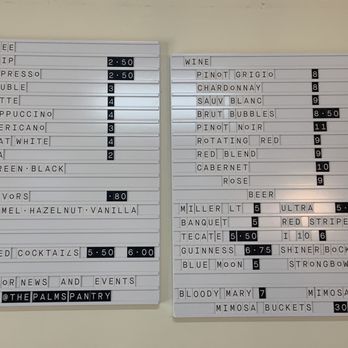 EE
IP 2.50
PRESSO 2.50
UBLE 3
TTE 4
PPUCCINO 4
ERICANO 3
AT WHITE 4
A 2
REEN·BLACK
VORS .80
MEL·HAZELNUT·VANILLA
ED COCKTAILS 5.50 6.00
OR NEWS AND EVENTS
@THEPALMSPANTRY
WINE
PINOT GRIGIO 8
CHARDONNAY 8
SAUV BLANC 9
BRUT BUBBLES 8.50
PINOT NOIR 11
ROTATING RED 9
RED BLEND 9
CABERNET 10
ROSE 9
BEER
MILLER LT 5 ULTRA 5
BANQUET 5 RED STRIPE
TECATE 5.50 I 10 6
GUINNESS 6.75 SHINER BOCK
BLUE MOON 5 STRONGBOW
BLOODY MARY 7 MIMOSA
MIMOSA BUCKETS 30